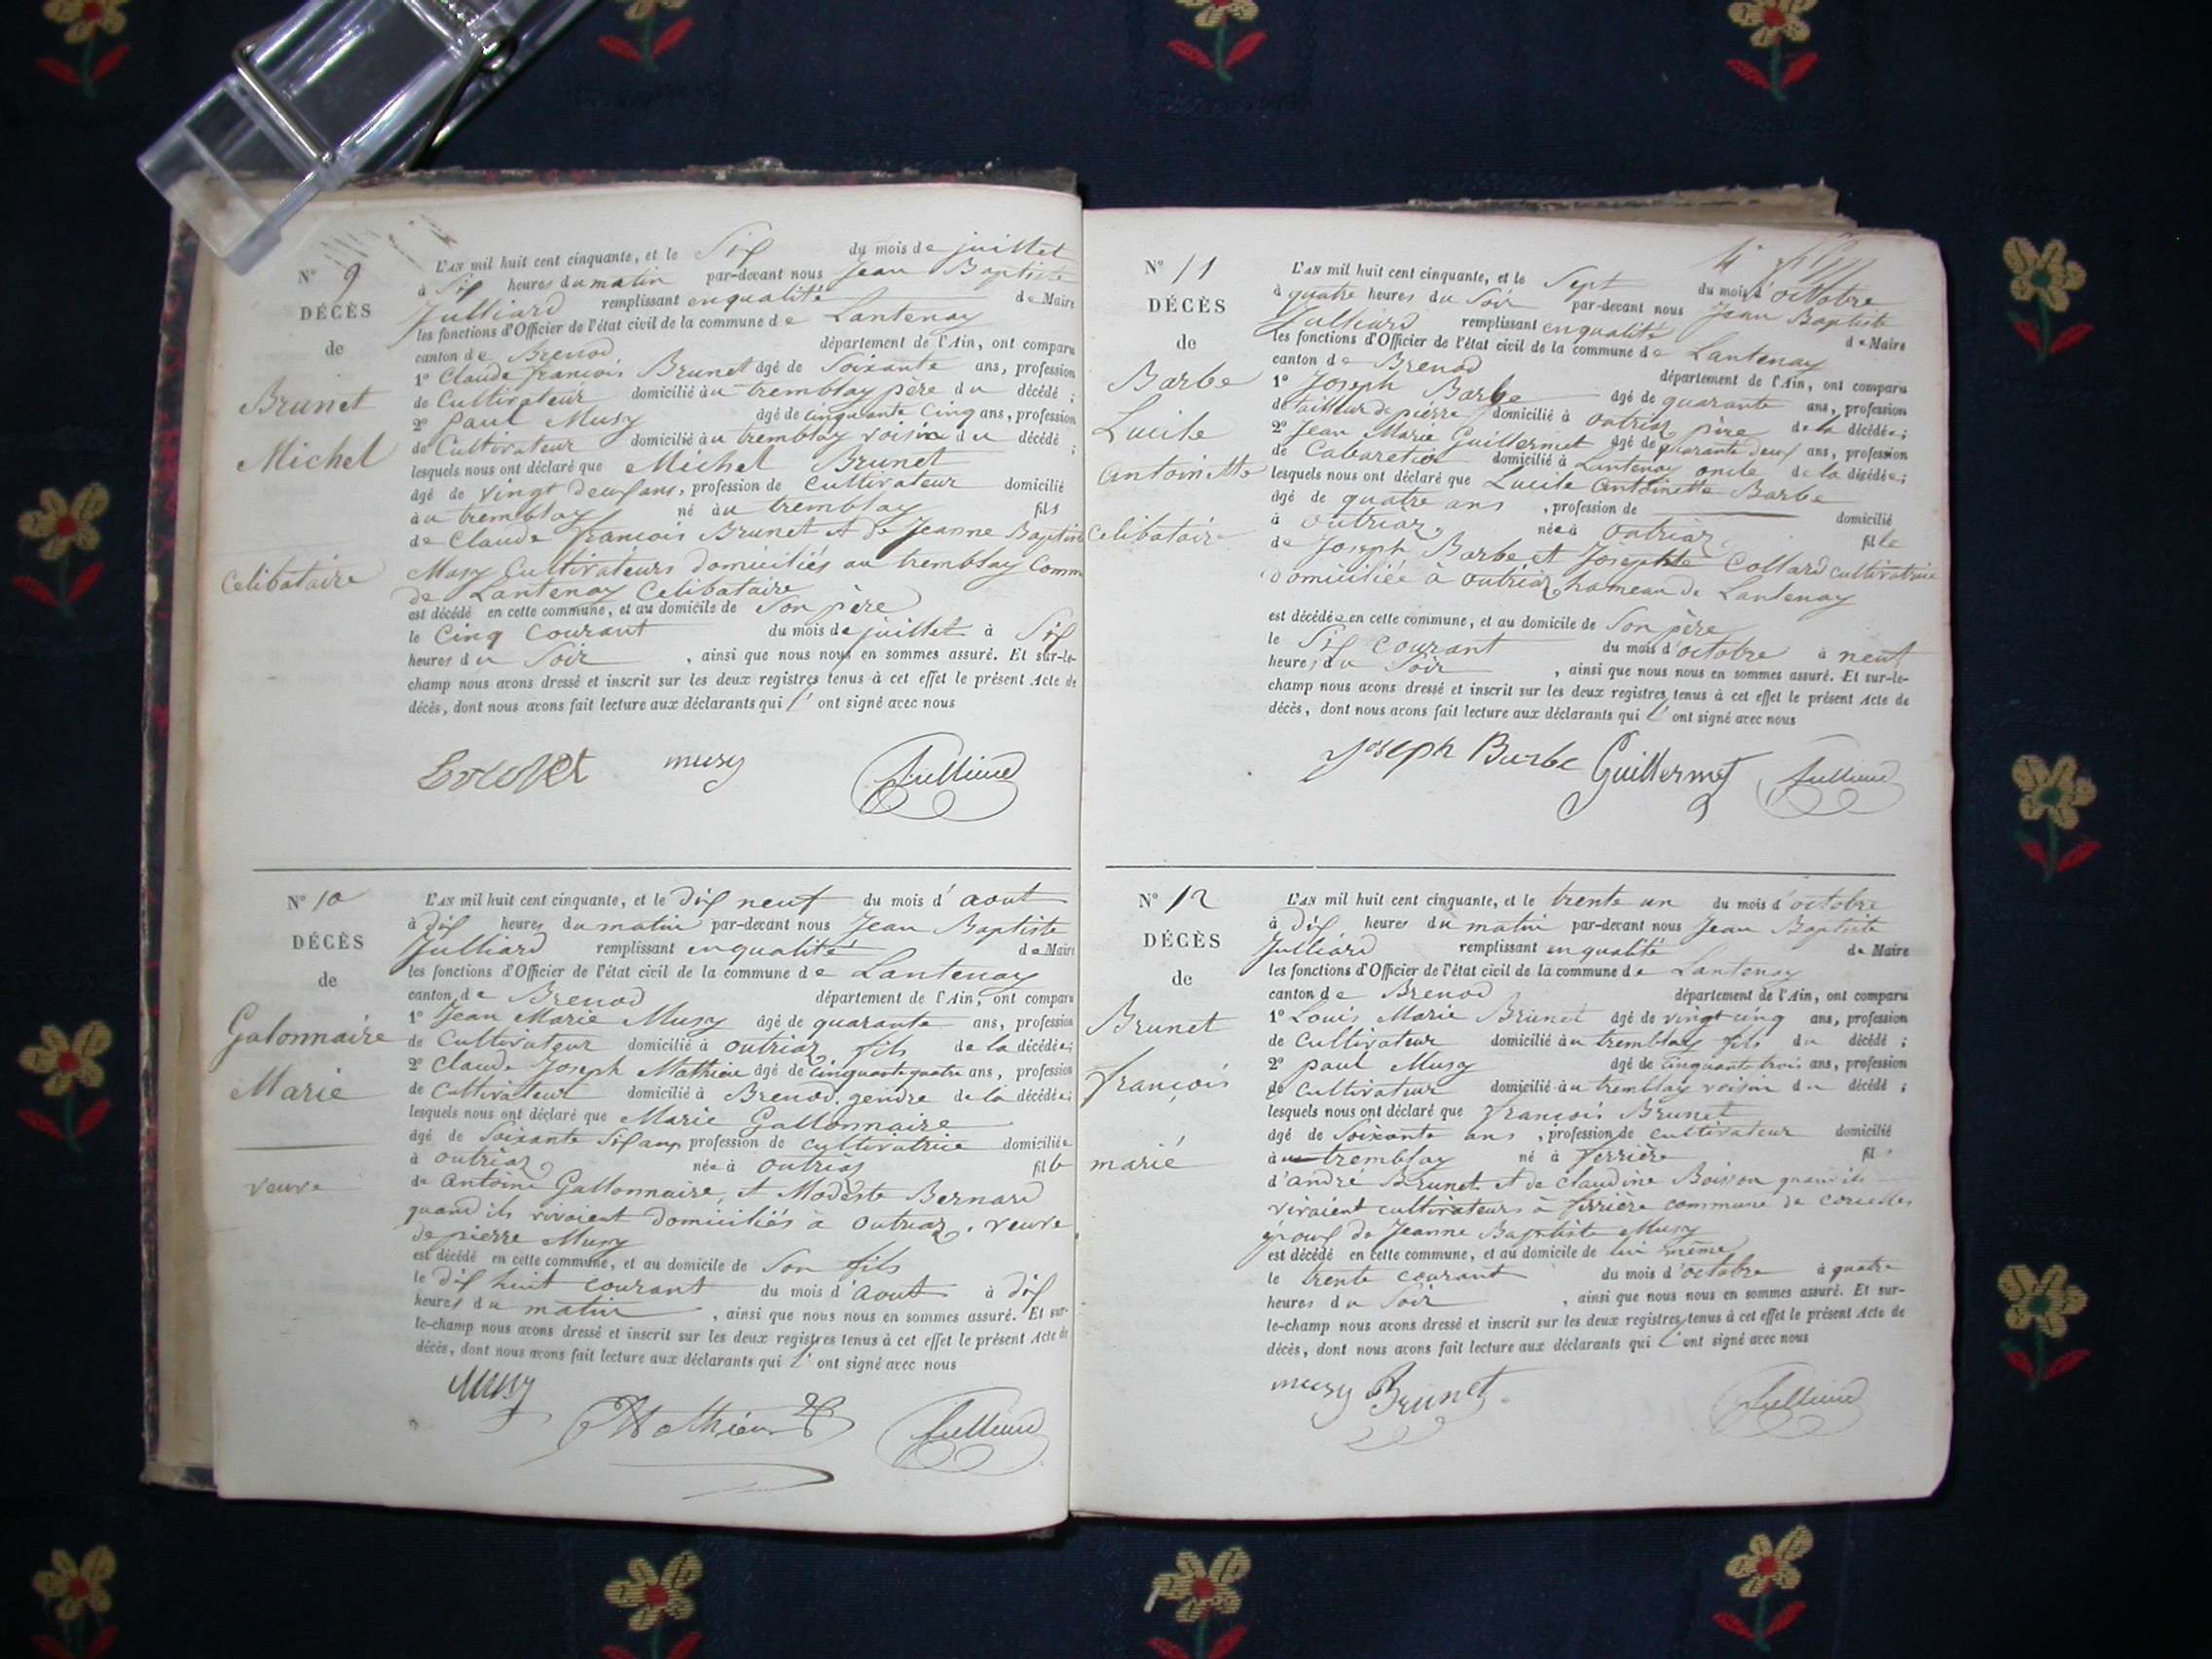 N° 9
DÉCÈS
de
Brunet
Michel
Celibataire
L'AN mil huit cent cinquante, et le Six du mois de juillet
à Six heures du matin par-devant nous Jean Baptiste
Julliard remplissant en qualité de Maire
les fonctions d'Officier de l'état civil de la commune de Lantenay
canton de Brenod département de l'Ain, ont comparu
1° Claude françois Brunet âgé de Soixante ans, profession
de Cultivateur domicilié au tremblay père du décédé ;
2° paul Musy âgé de cinquante Cinq ans, profession
de Cultivateur domicilié au tremblay voisin du décédé ;
lesquels nous ont déclaré que Michel Brunet
âgé de vingt deux ans, profession de cultivateur domicilié
au tremblay né au tremblay fils
de Claude françois Brunet et de Jeanne Baptiste
Musy Cultivateurs domiciliés au tremblay Comm
de Lantenay Celibataire
est décédé en cette commune, et au domicile de Son père
le Cinq courant du mois de juillet à Six
heures du Soir , ainsi que nous nous en sommes assuré. Et sur-le-
champ nous avons dressé et inscrit sur les deux registres tenus à cet effet le présent Acte de
décès, dont nous avons fait lecture aux déclarants qui l'ont signé avec nous
musy Julliard
N° 10
DÉCÈS
de
Galonnaire
Marie
veuve
L'AN mil huit cent cinquante, et le dix neuf du mois d'aout
à dix heures du matin par-devant nous Jean Baptiste
Julliard remplissant en qualité de Maire
les fonctions d'Officier de l'état civil de la commune de Lantenay
canton de Brenod département de l'Ain, ont comparu
1° Jean Marie Musy âgé de quarante ans, profession
de Cultivateur domicilié à outriaz fils de la décédée;
2° Claude Joseph Mathieu âgé de cinquante quatre ans, profession
de Cultivateur domicilié à Brenod, gendre de la décédée;
lesquels nous ont déclaré que Marie Gallonnaire
âgé de Soixante Six ans profession de cultivatrice domiciliée
à outriaz née à outriaz fille
de antoine Gallonnaire, et Modeste Bernard
quand ils vivaient domiciliés à outriaz, veuve
de pierre Musy
est décédé en cette commune, et au domicile de Son fils
le dix huit courant du mois d'aout à dix
heures du matin , ainsi que nous nous en sommes assuré. Et sur-
le-champ nous avons dressé et inscrit sur les deux registres tenus à cet effet le présent Acte de
décès, dont nous avons fait lecture aux déclarants qui l'ont signé avec nous
Musy Mathieu Julliard
N° 11
DÉCÈS
de
Barbe
Lucile
antoinette
Celibataire
L'AN mil huit cent cinquante, et le Sept du mois d'octobre
à quatre heures du Soir par-devant nous Jean Baptiste
Julliard remplissant en qualité de Maire
les fonctions d'Officier de l'état civil de la commune de Lantenay
canton de Brenod département de l'Ain, ont comparu
1° Joseph Barbe âgé de quarante ans, profession
de tailleur de pierre domicilié à outriaz père de la décédée;
2° Jean Marie Guillermet âgé de quarante deux ans, profession
de Cabaretier domicilié à Lantenay oncle de la décédée;
lesquels nous ont déclaré que Lucile Antoinette Barbe
âgé de quatre ans , profession de domicilié
à outriaz née à outriaz fille
de Joseph Barbe et Josephte Collard cultivatrice
domiciliée à outriaz hameau de Lantenay
est décédée en cette commune, et au domicile de Son père
le Six courant du mois d'octobre à neuf
heures du Soir , ainsi que nous nous en sommes assuré. Et sur-le-
champ nous avons dressé et inscrit sur les deux registres tenus à cet effet le présent Acte de
décès, dont nous avons fait lecture aux déclarants qui l'ont signé avec nous
Joseph Barbe Guillermet Julliard
N° 12
DÉCÈS
de
Brunet
françois
marié
L'AN mil huit cent cinquante, et le trente un du mois d'octobre
à dix heures du matin par-devant nous Jean Baptiste
Julliard remplissant en qualité de Maire
les fonctions d'Officier de l'état civil de la commune de Lantenay
canton de Brenod département de l'Ain, ont comparu
1° Louis Marie Brunet âgé de vingt cinq ans, profession
de Cultivateur domicilié au tremblay fils du décédé ;
2° paul Musy âgé de cinquante trois ans, profession
de cultivateur domicilié au tremblay voisin du décédé ;
lesquels nous ont déclaré que françois Brunet
âgé de Soixante ans , profession de cultivateur domicilié
au tremblay né à ferrière fils
d'andré Brunet et de claudine Boisson quand ils
vivaient cultivateurs à ferrière commune de corcelles
époux de Jeanne Baptiste Musy
est décédé en cette commune, et au domicile de lui même
le trente courant du mois d'octobre à quatre
heures du Soir , ainsi que nous nous en sommes assuré. Et sur-
le-champ nous avons dressé et inscrit sur les deux registres tenus à cet effet le présent Acte de
décès, dont nous avons fait lecture aux déclarants qui l'ont signé avec nous
musy Brunet Julliard